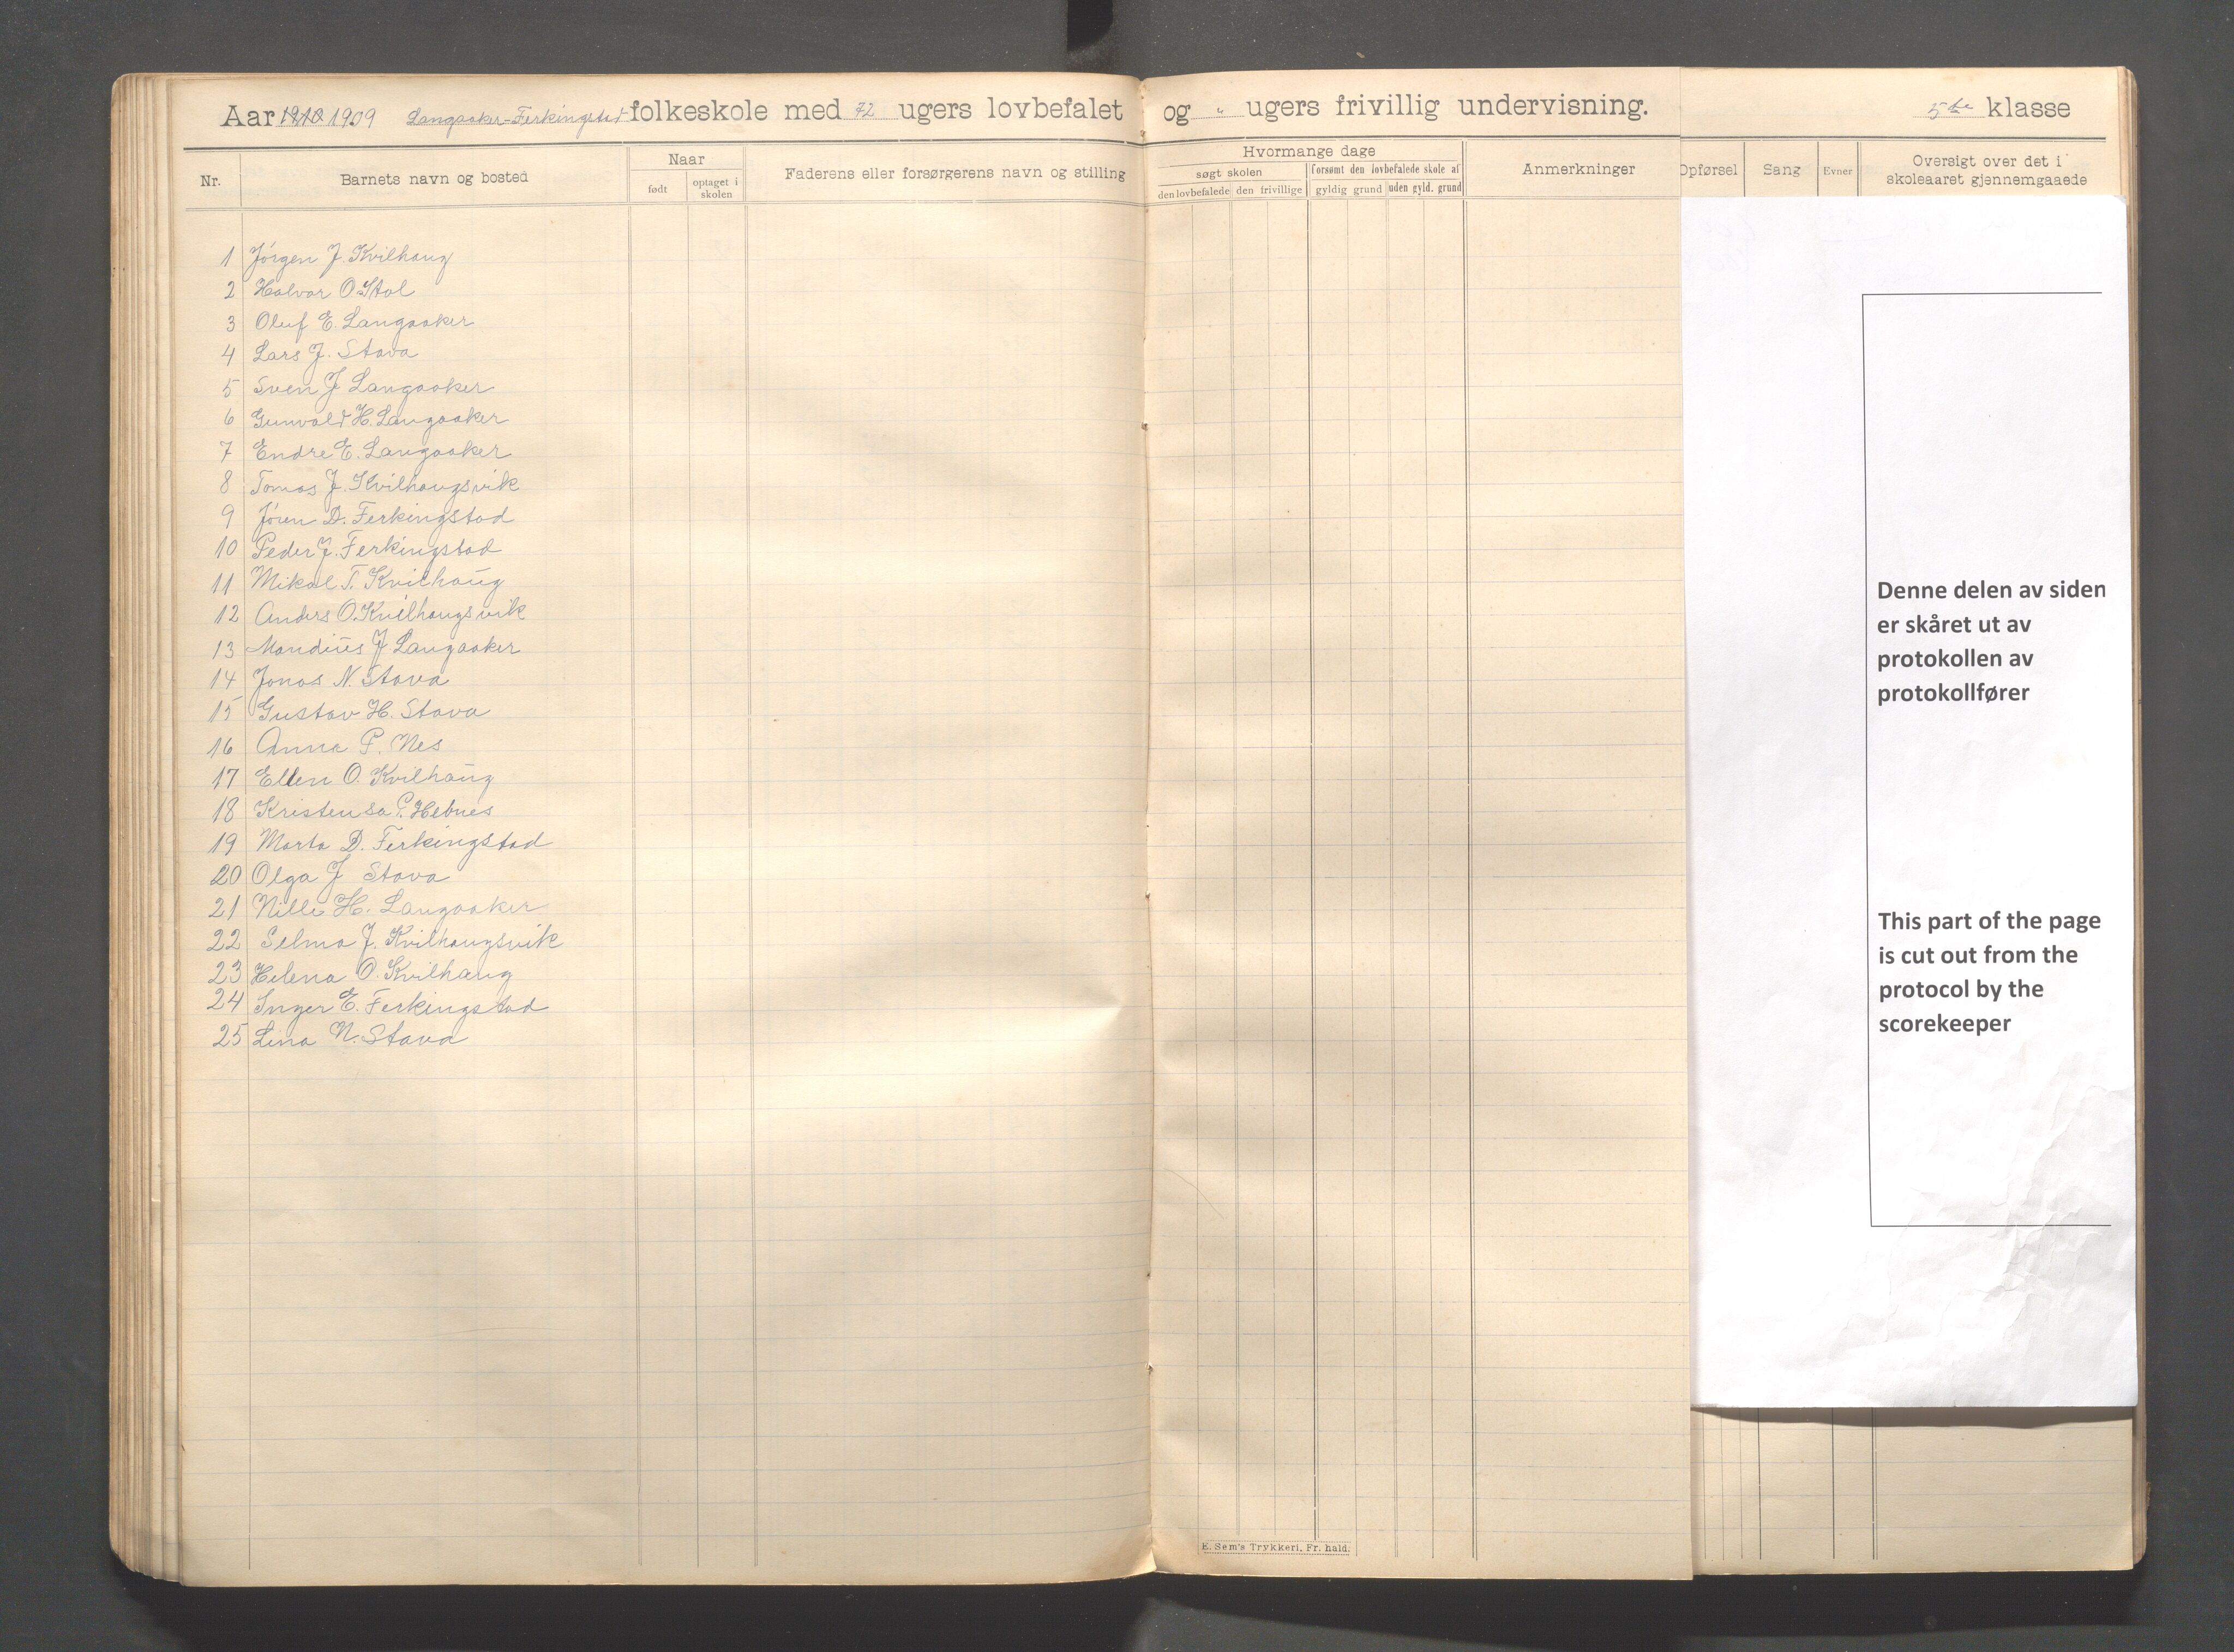 Aar 1910 1909 Langaaker-Ferkingstad folkeskole med 72 ugers lovbefalet og " ugers frivillig undervisning. 5te klasse
Nr. Barnets navn og bosted Naar Faderens eller forsørgerens navn og stilling Hvormange dage Anmerkninger Opførsel Sang Evner Oversigt over det i skoleaaret gjennemgaaede
født optaget i skolen søgt skolen forsømt den lovbefalede skole af
den lovbefalede den frivillige gyldig grund uden gyld. grund
1 Jörgen J. Kvilhaug
2 Halvor O Stol
3 Oluf E. Langaaker
4 Lars J. Stava
5 Sven J Langaaker
6 Gunvald H. Langaaker
7 Endre E. Langaaker
8 Tomas J. Kvilhaugsvik
9 Jören D. Ferkingstad
10 Peder J. Ferkingstad
11 Mikal T. Kvilhaug
12 Anders O. Kvilhaugsvik
13 Mandius J Langaaker
14 Jonas N. Stava
15 Gustav H. Stava
16 Anna P. Nes
17 Ellen O. Kvilhaug
18 Kristensa P. Hebnes
19 Marta D. Ferkingstad
20 Olga J Stava
21 Nille H. Langaaker
22 Selma J. Kvilhaugsvik
23 Helena O. Kvilhaug
24 Inger E. Ferkingstad
25 Lina N. Stava
Denne delen av siden
er skåret ut av
protokollen av
protokollfører
This part of the page
is cut out from the
protocol by the
scorekeeper
E. Sem's Trykkeri, Fr. hald.